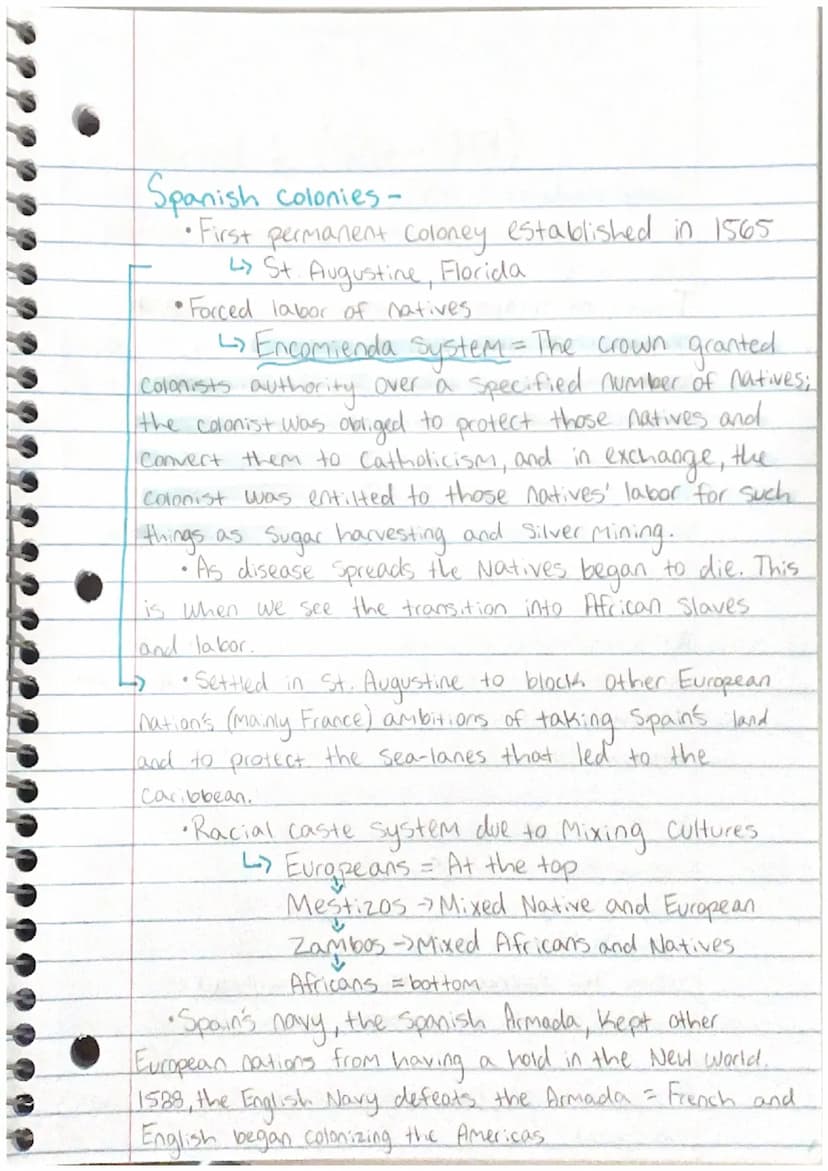 Spanish Colonies -
• First permanent coloney established in 1565
↳ St. Augustine, Florida
• Forced labor of natives
↳ Encomienda System = The crown granted
colonists authority over a specified number of natives;
the colonist was obliged to protect those natives and
convert them to Catholicism, and in exchange, the
colonist was entilted to those natives' labor for such
things as sugar harvesting and silver mining.
• As disease spreads the Natives began to die. This
is when we see the transition into African slaves
and labor.
→ • Settled in St. Augustine to block other European
nation's (mainly France) ambitions of taking Spain's land
and to protect the sea-lanes that led to the
Caribbean.
• Racial caste system due to Mixing cultures
↳ Europeans = At the top
↓
Mestizos → Mixed Native and European
↓
Zambos → Mixed Africans and Natives
↓
Africans = bottom
• Spain's navy, the Spanish Armada, kept other
European nations from having a hold in the New World.
1588, the English Navy defeats the Armada = French and
English began colonizing the Americas